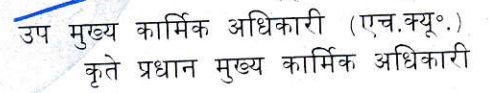 उप मुख्य कार्मिक अधिकारी (एच.क्यू॰.)
कृते प्रधान मुख्य कार्मिक अधिकारी